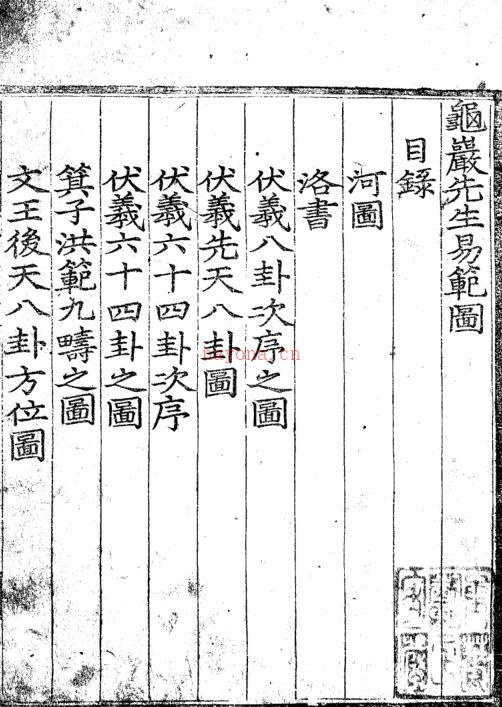 龜巖先生易範圖
目錄
河圖
洛書
伏羲八卦次序之圖
伏羲先天八卦圖
伏羲六十四卦次序
伏羲六十四卦之圖
箕子洪範九疇之圖
文王後天八卦方位圖
nayona.cn